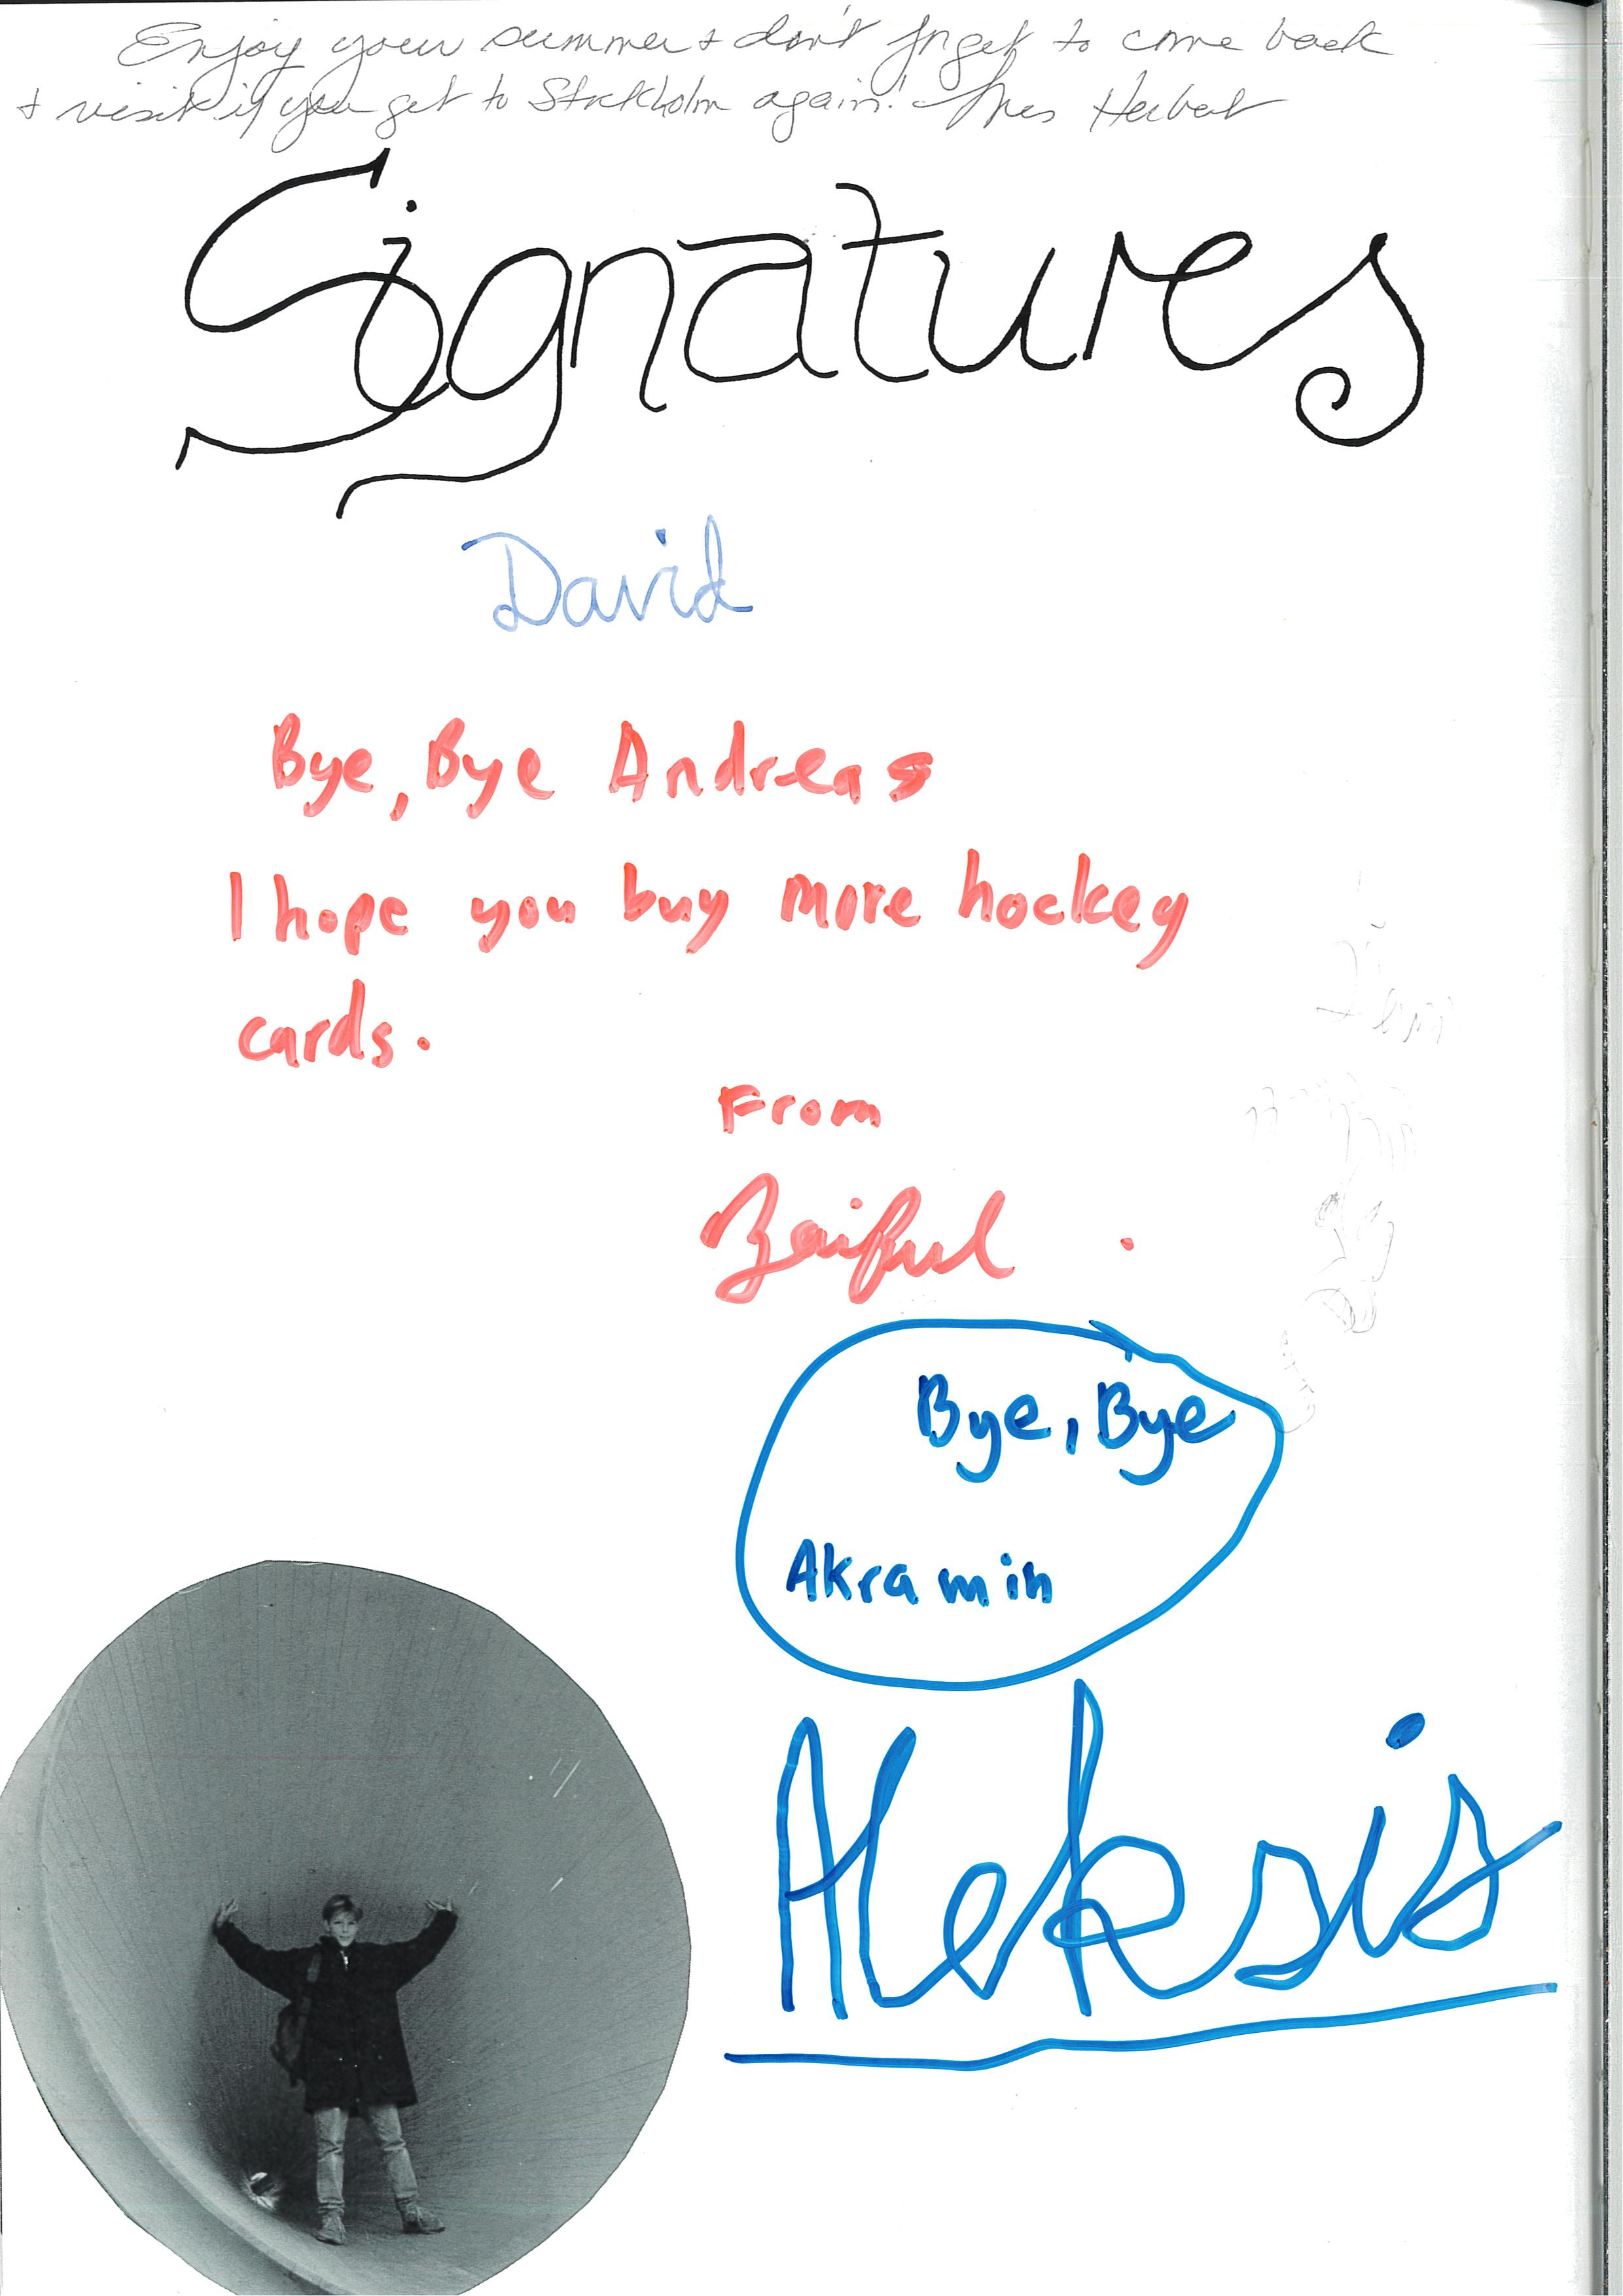 Enjoy your summer & don't forget to come back
& visit if you get to Stockholm again! - Mrs Herbert
Signatures
David
Bye, Bye Andreas
I hope you buy more hockey
cards.
From
Zaiful
Bye, Bye
Akramin
Aleksis